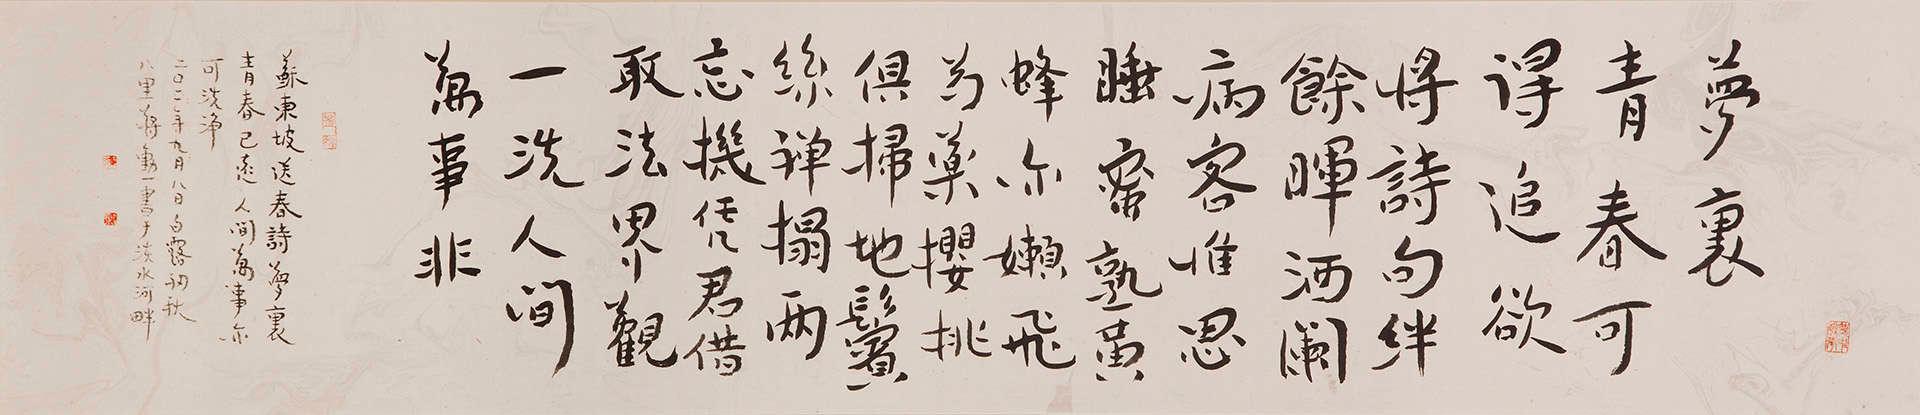 夢裏
青春可
得追欲
將詩句絆
餘暉酒闌
病客惟思
睡蜜熟黃
蜂亦嬾飛
芍藥櫻桃
俱掃地鬢
絲禪榻两
忘機凭君借
取法界觀
一洗人間
萬事非
蘇東坡送春詩夢裏
青春已遠人間萬事亦
可洗淨
二〇二二年九月八日白露初秋
八里蔣勳書于淡水河畔